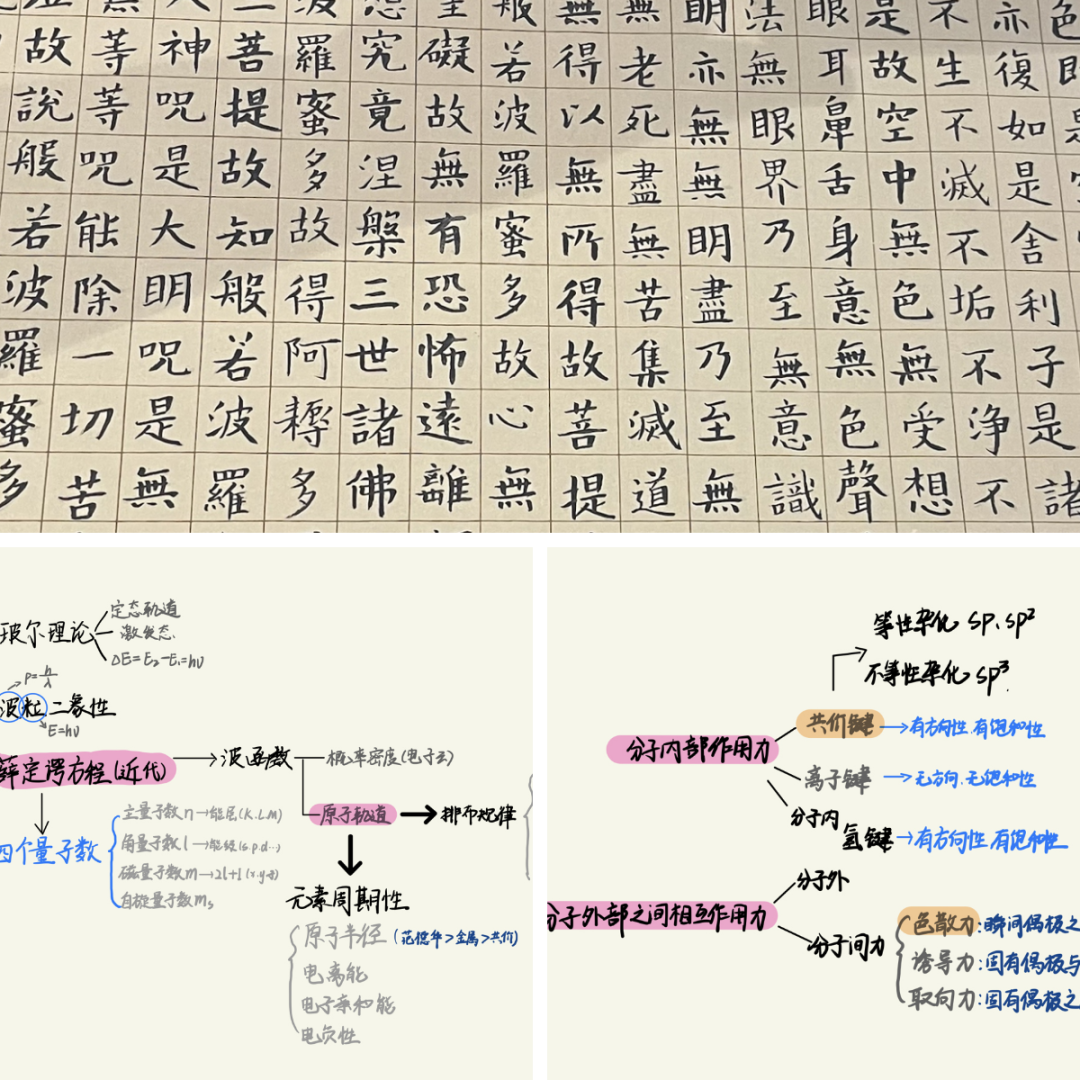 亦復如是舍利子是諸
不生不滅不垢不浄不
是故空中無色無受想
眼耳鼻舌身意無色聲
法無眼界乃至無意識
明亦無無明盡乃至無
無老死盡無苦集滅道
無得以無所得故菩提
般若波羅蜜多故心無
礙故無有恐怖遠離
究竟涅槃三世諸佛
羅蜜多故得阿耨多
菩提故知般若波羅
神咒是大明咒是無
等等咒能除一切苦
故說般若波羅蜜多
玻尔理论
定态轨道
激发态
ΔE=E₂-E₁=hν
P=h/λ
波粒二象性
E=hν
薛定谔方程(近代)
波函数
概率密度(电子云)
原子轨道
排布规律
四个量子数
主量子数n→能层(K.L.M)
角量子数l→能级(s.p.d…)
磁量子数m→2l+1(x.y.z)
自旋量子数ms
元素周期性
原子半径(范德华>金属>共价)
电离能
电子亲和能
电负性
等性杂化 sp、sp²
不等性杂化 sp³
分子内部作用力
共价键→有方向性.有饱和性
离子键→无方向.无饱和性
分子内氢键→有方向性.有饱和性
分子外部之间相互作用力
分子外
分子间力
色散力:瞬间偶极之
诱导力:固有偶极与
取向力:固有偶极之